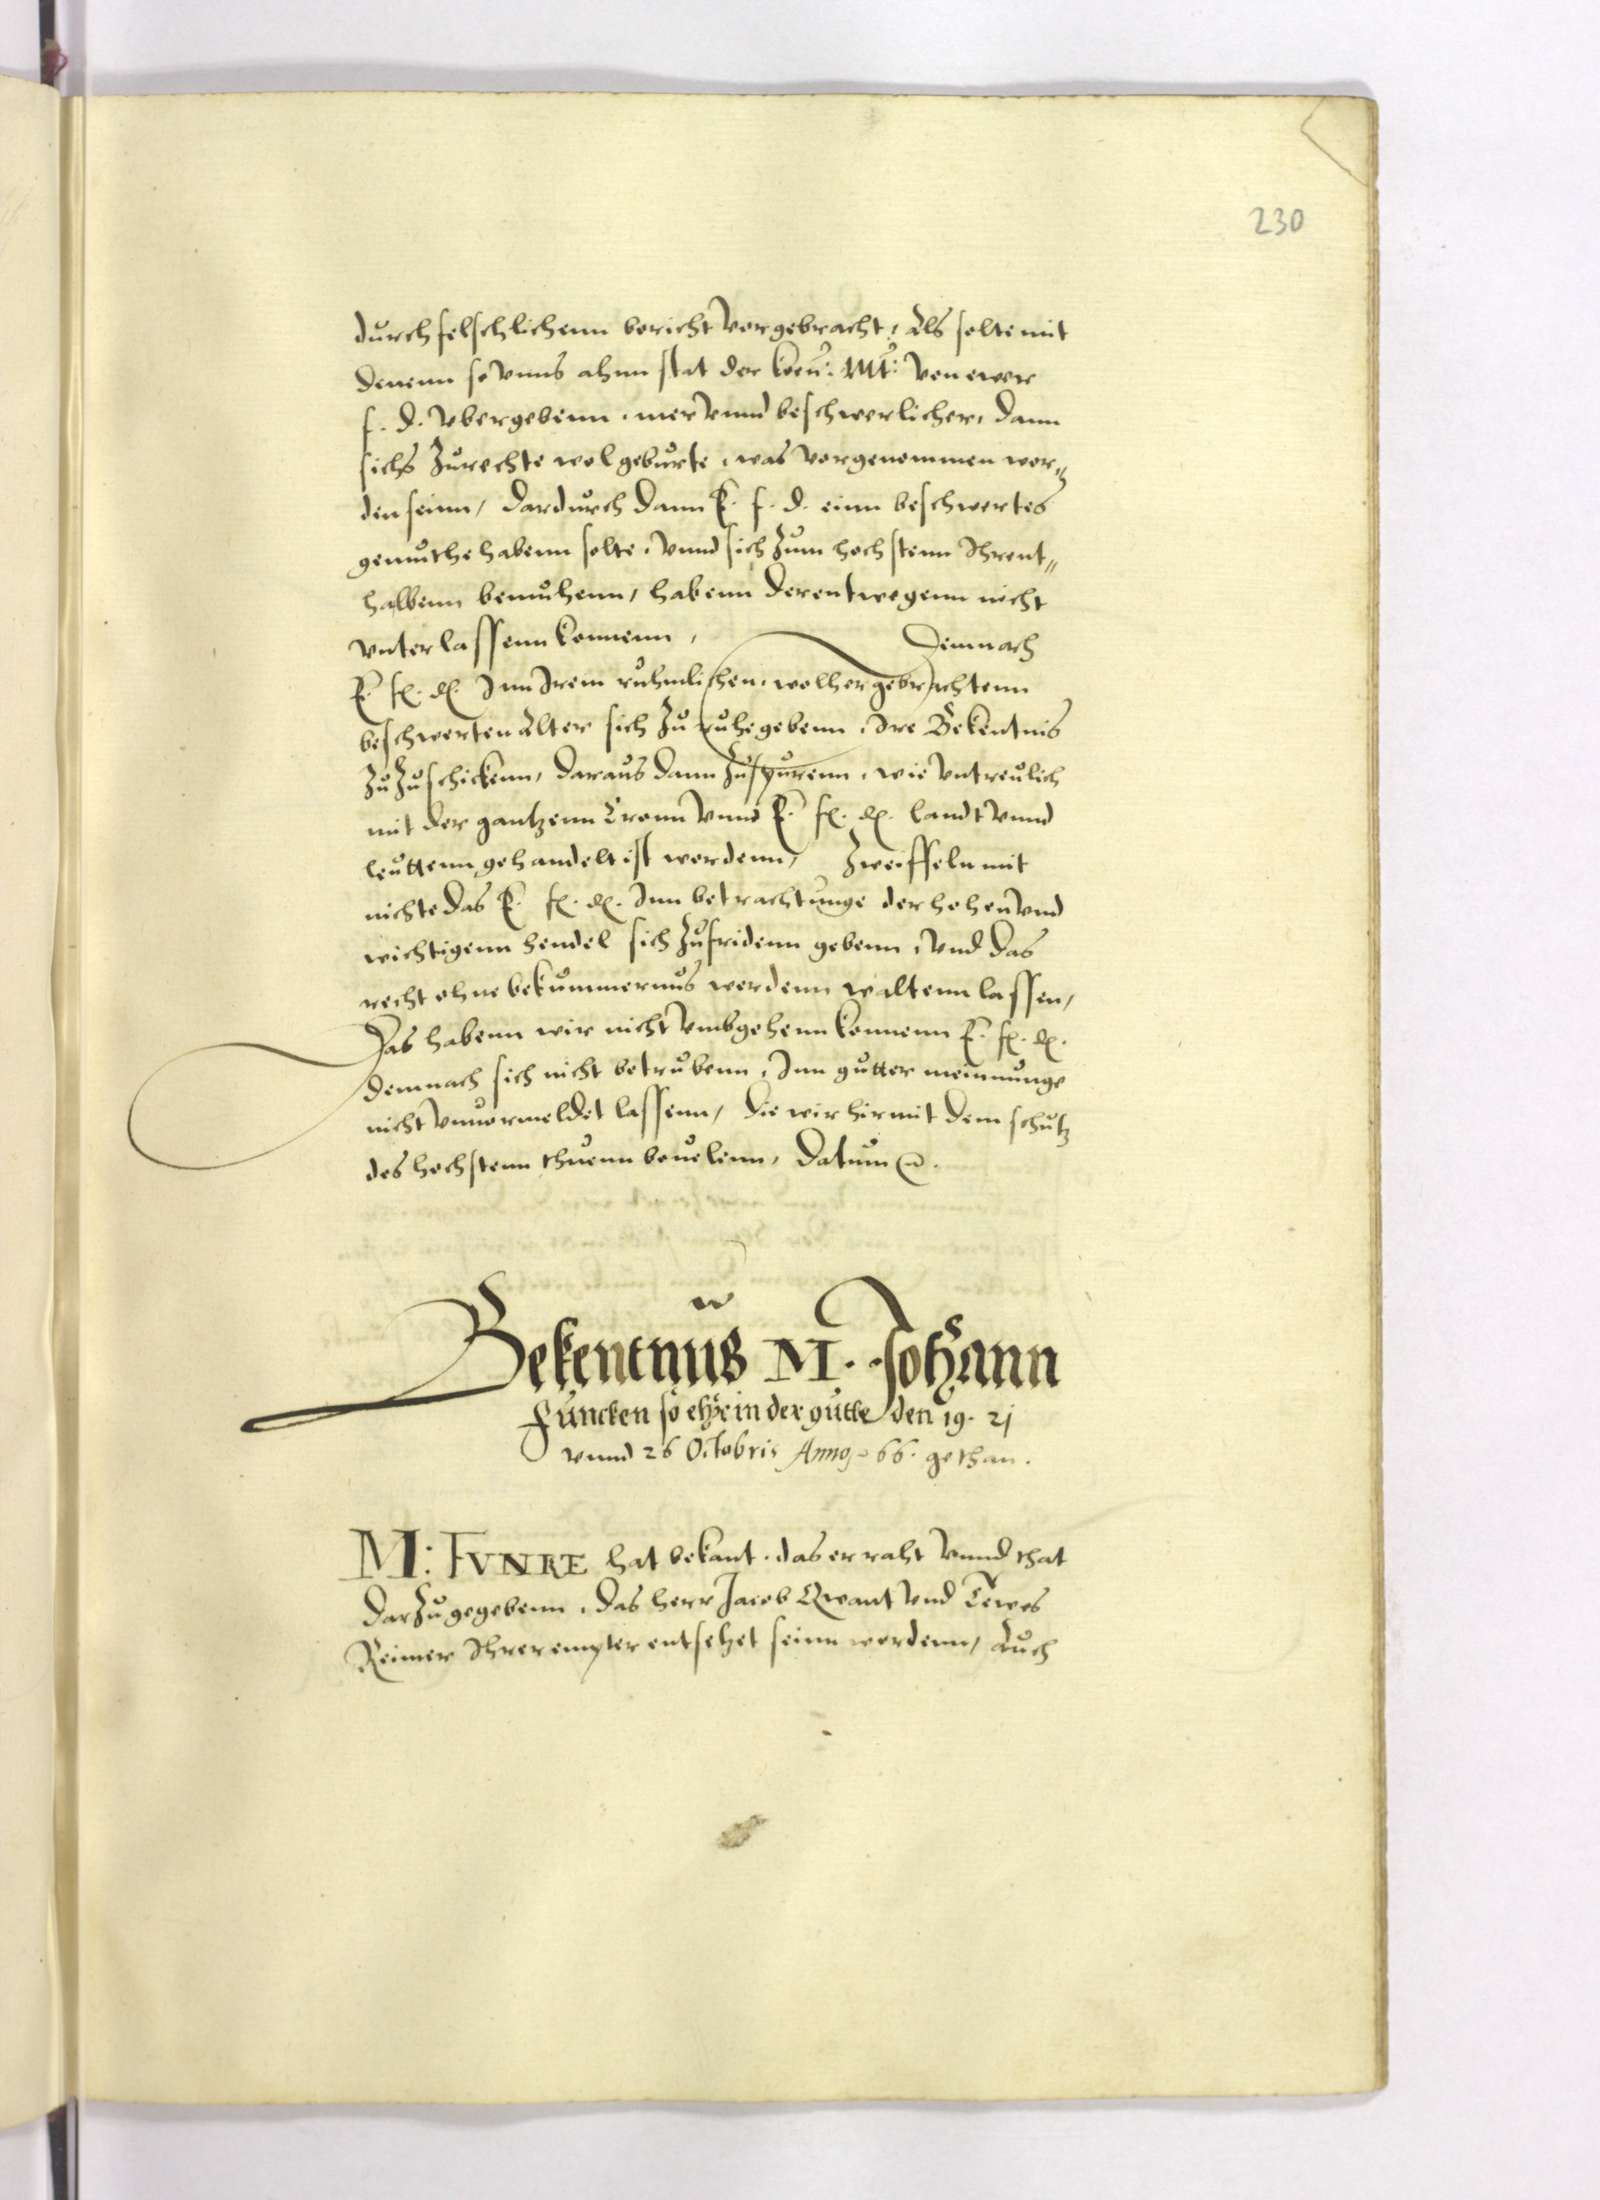 230
durch felschlichenn bericht vorgebracht, Als solte mit
denenn so vnns ahnn stat der Kön: Mt: von ewer
f. d. vbergebenn, mer vnnd beschwerlicher, dann
sichs zurechte wol geburte, was vorgenommen wor„
den seinn, dardurch dann E. f. d. einn beschwertes
gemuthe habenn solte, vnnd sich zum hochstenn Ihrent„
halbenn bemuhenn, habenn derentwegenn nicht
vnterlassenn konnenn, Demnach
E. f. d. Inn Irem ruhmlichen, wolhergebrachtenn
beschwerten Alter sich zu ruhe gebenn, Ire Bekentnis
zuzuschickenn, daraus dann zuspurenn, wie vntreulich
mit der gantzenn Cronn vnnd E. f. d. landt vnnd
leuttenn gehandelt ist wordenn, Zweiffeln mit
nichte das E. f. d. Inn betrachtunge der hohen vnd
wichtigenn hendel sich zufridenn gebenn, vnd das
recht ohne bekummernus werdenn waltenn lassen,
Das habenn wir nicht vmbgehenn konnenn E. f. d.
demnach sich nicht betrubenn, Inn gutter meinnunge
nicht vnuormeldet lassenn, die wir hirmit dem schutz
des hochstenn thuenn beuelenn, Datum
Bekentnus M. Johann
Funcken so ehr in der gutte den 19. 21
vnnd 26 Octobris Anno 66. gethan.
M: FVNKE hat bekant, das er raht vnnd that
darzu gegebenn, das herr Jacob Qwant vnd Tewes
Reimer Ihrer empter entsetzet seinn wordenn, Auch